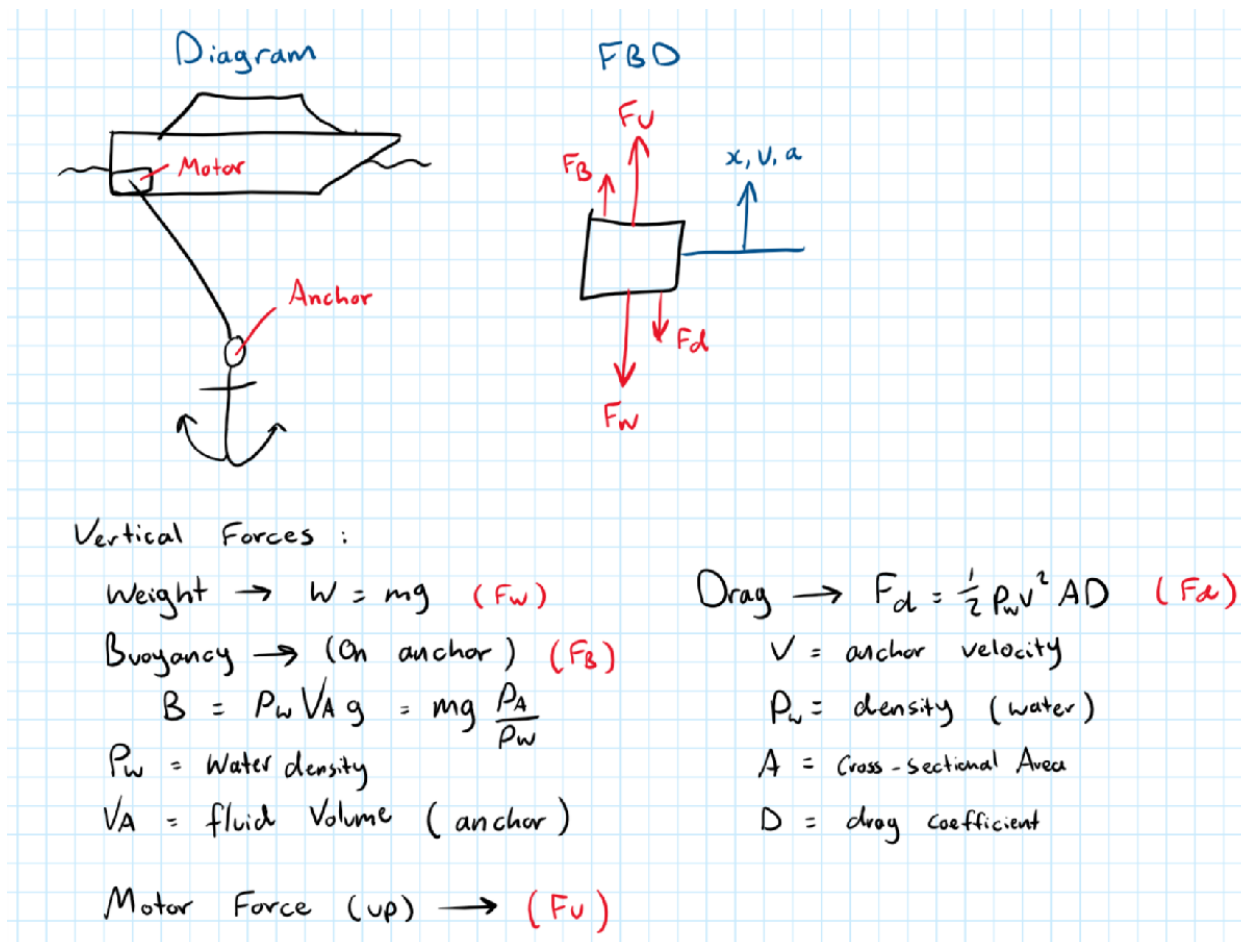 Diagram
FBD
Motor
Anchor
FU
FB
x, v, a
Fd
FW
Vertical Forces :
Weight → W = mg (FW)
Buoyancy → (On anchor) (FB)
B = ρw VA g = mg ρA/ρw
ρw = Water density
VA = fluid Volume (anchor)
Motor Force (up) → (FU)
Drag → Fd = 1/2 ρw v² AD (Fd)
V = anchor velocity
ρw = density (water)
A = Cross-sectional Area
D = drag coefficient